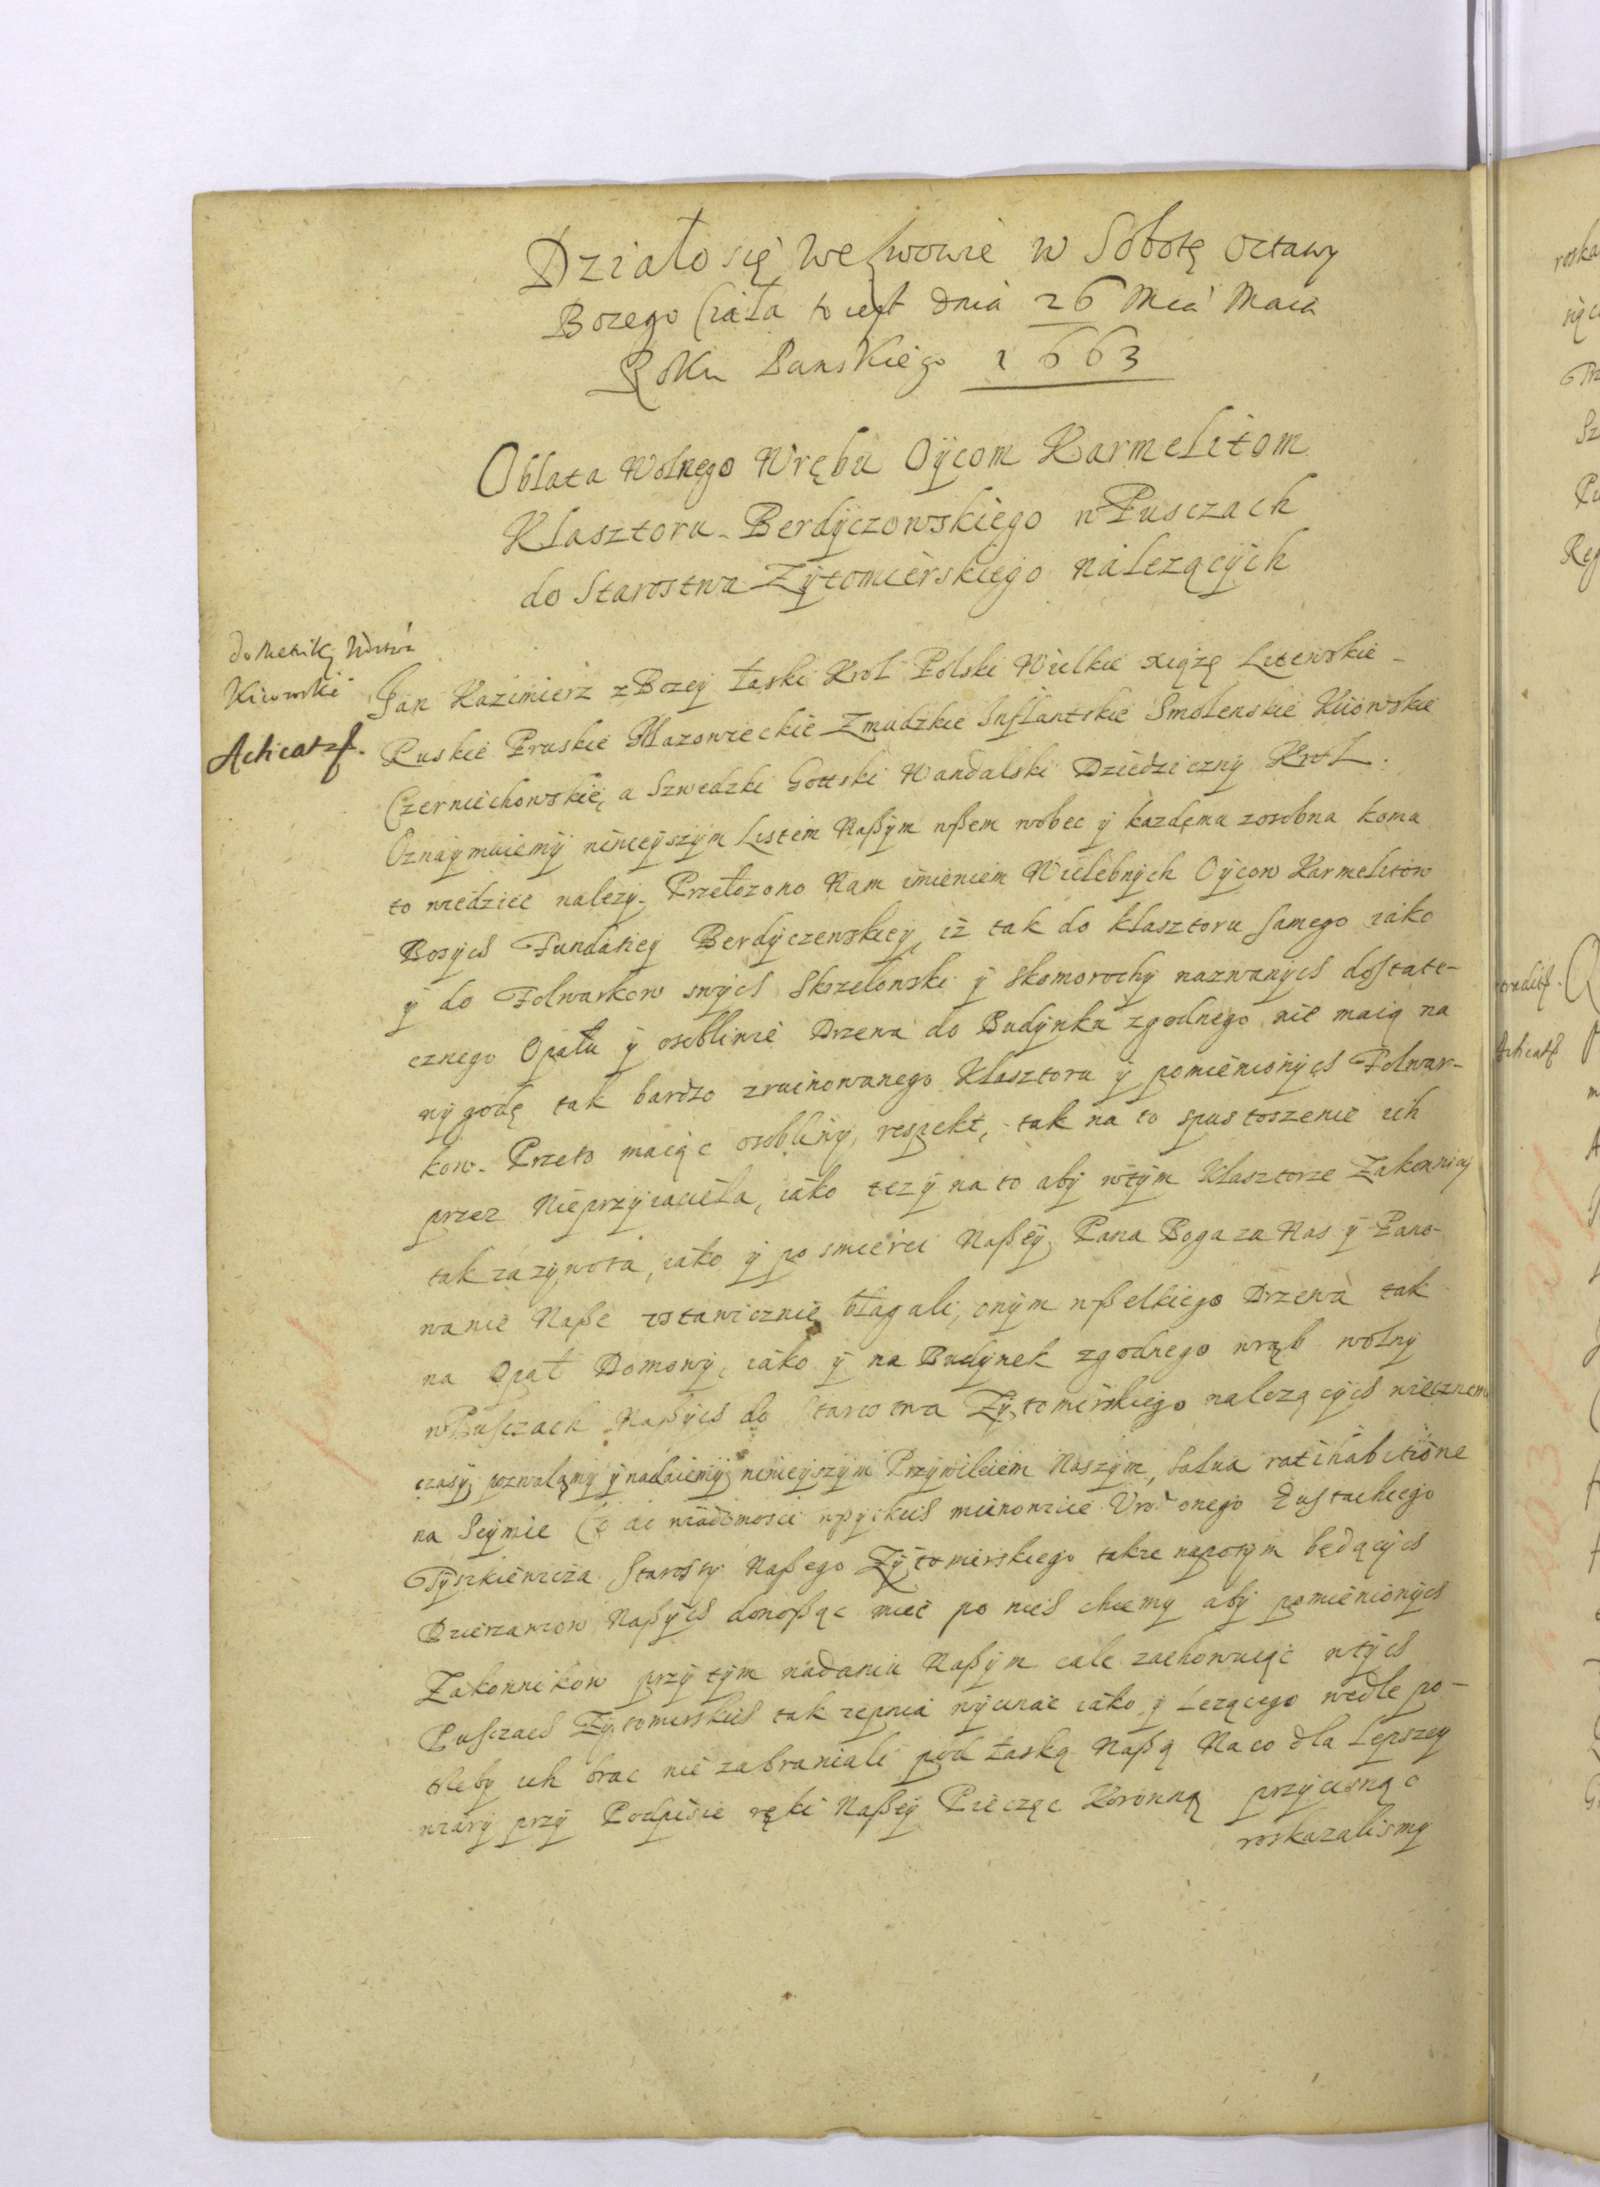 Działo się we Lwowie w Sobotę Octawy
Bozego Ciała to iest dnia 26 Mca Maia
Roku Panskiego 1663
Oblata Wolnego Wrębu Oÿcom Karmelitom
Klasztoru Berdÿczowskiego w Pusczach
do Starostwa Zÿtomierskiego nalezącÿch
do Metriki
Kiiowskie
Jan Kazimierz z Bozeÿ łaski Krol Polski Wielkie xiązę Litewskie
Ruskie Pruskie Mazowieckie Zmudzkie Inflantskie Smolenskie Kiiowskie
Czerniechowskie, a Szwedzki Gottski Wandalski Dziedziczny Krol.
Oznaÿmuiemÿ ninieÿszÿm Listem Naßÿm wßem wobec ÿ kazdemu zosobna komu
to wiedziec nalezy. Przełozono Nam imieniem Wielebnych Oÿcow Karmelitow
Bosÿch Fundatieÿ Berdÿczewskieÿ, iż tak do klasztoru samego iako
ÿ do Folwarkow swÿch ÿ Skomorochÿ nazwanÿch dostate-
cznego Opału ÿ osobliwie Drzewa do Budÿnku zgodnego nie maią na
wÿgodę tak bardzo zruinowanego Klasztoru ÿ pomienionÿch Folwar-
kow. Przeto maiąc osobliwÿ respekt, tak na to spustoszenie ich
przez Nieprzÿiaciela, iako tez ÿ na to abÿ wtÿm Klasztorze Zakonnicÿ
tak za zÿwota, iako ÿ po smierci Naßeÿ Pana Boga za Nas ÿ Pano-
wanie Naße ustawicznie błagali, onÿm wßelkiego Drzewa tak
na Opał Domowÿ, iako ÿ na Budÿnek zgodnego wrąb wolnÿ
w Pusczach Naßÿch do Starostwa Zÿtomirskiego nalezącÿch wiecznemi
czasÿ pozwalamÿ ÿ nadaiemÿ ninieÿszÿm Przÿwileiem Naszÿm, salua ratihabitione
na Seÿmie Co do wiadomosci wßÿtkich mianowicie Eustachiego
Tÿszkiewicza Starostÿ Naßego Zÿtomirskiego takze napotÿm będącÿch
Dzierzawcow Naßÿch donosząc miec po nich chcemy abÿ pomienionÿch
Zakonnikow przÿ tÿm nadaniu Naßÿm cale zachowuiąc wtÿch
Pusczach Zÿtomirskich tak zepnia wÿcinać iako ÿ Lezącego wedle po-
trzebÿ ich brac nie zabraniali pod łaską Naßą Na co dla Lepszeÿ
wiarÿ przÿ Podpisie ręki Naßeÿ Pieczęc Koronną przÿcisnąc
roskazalismÿ